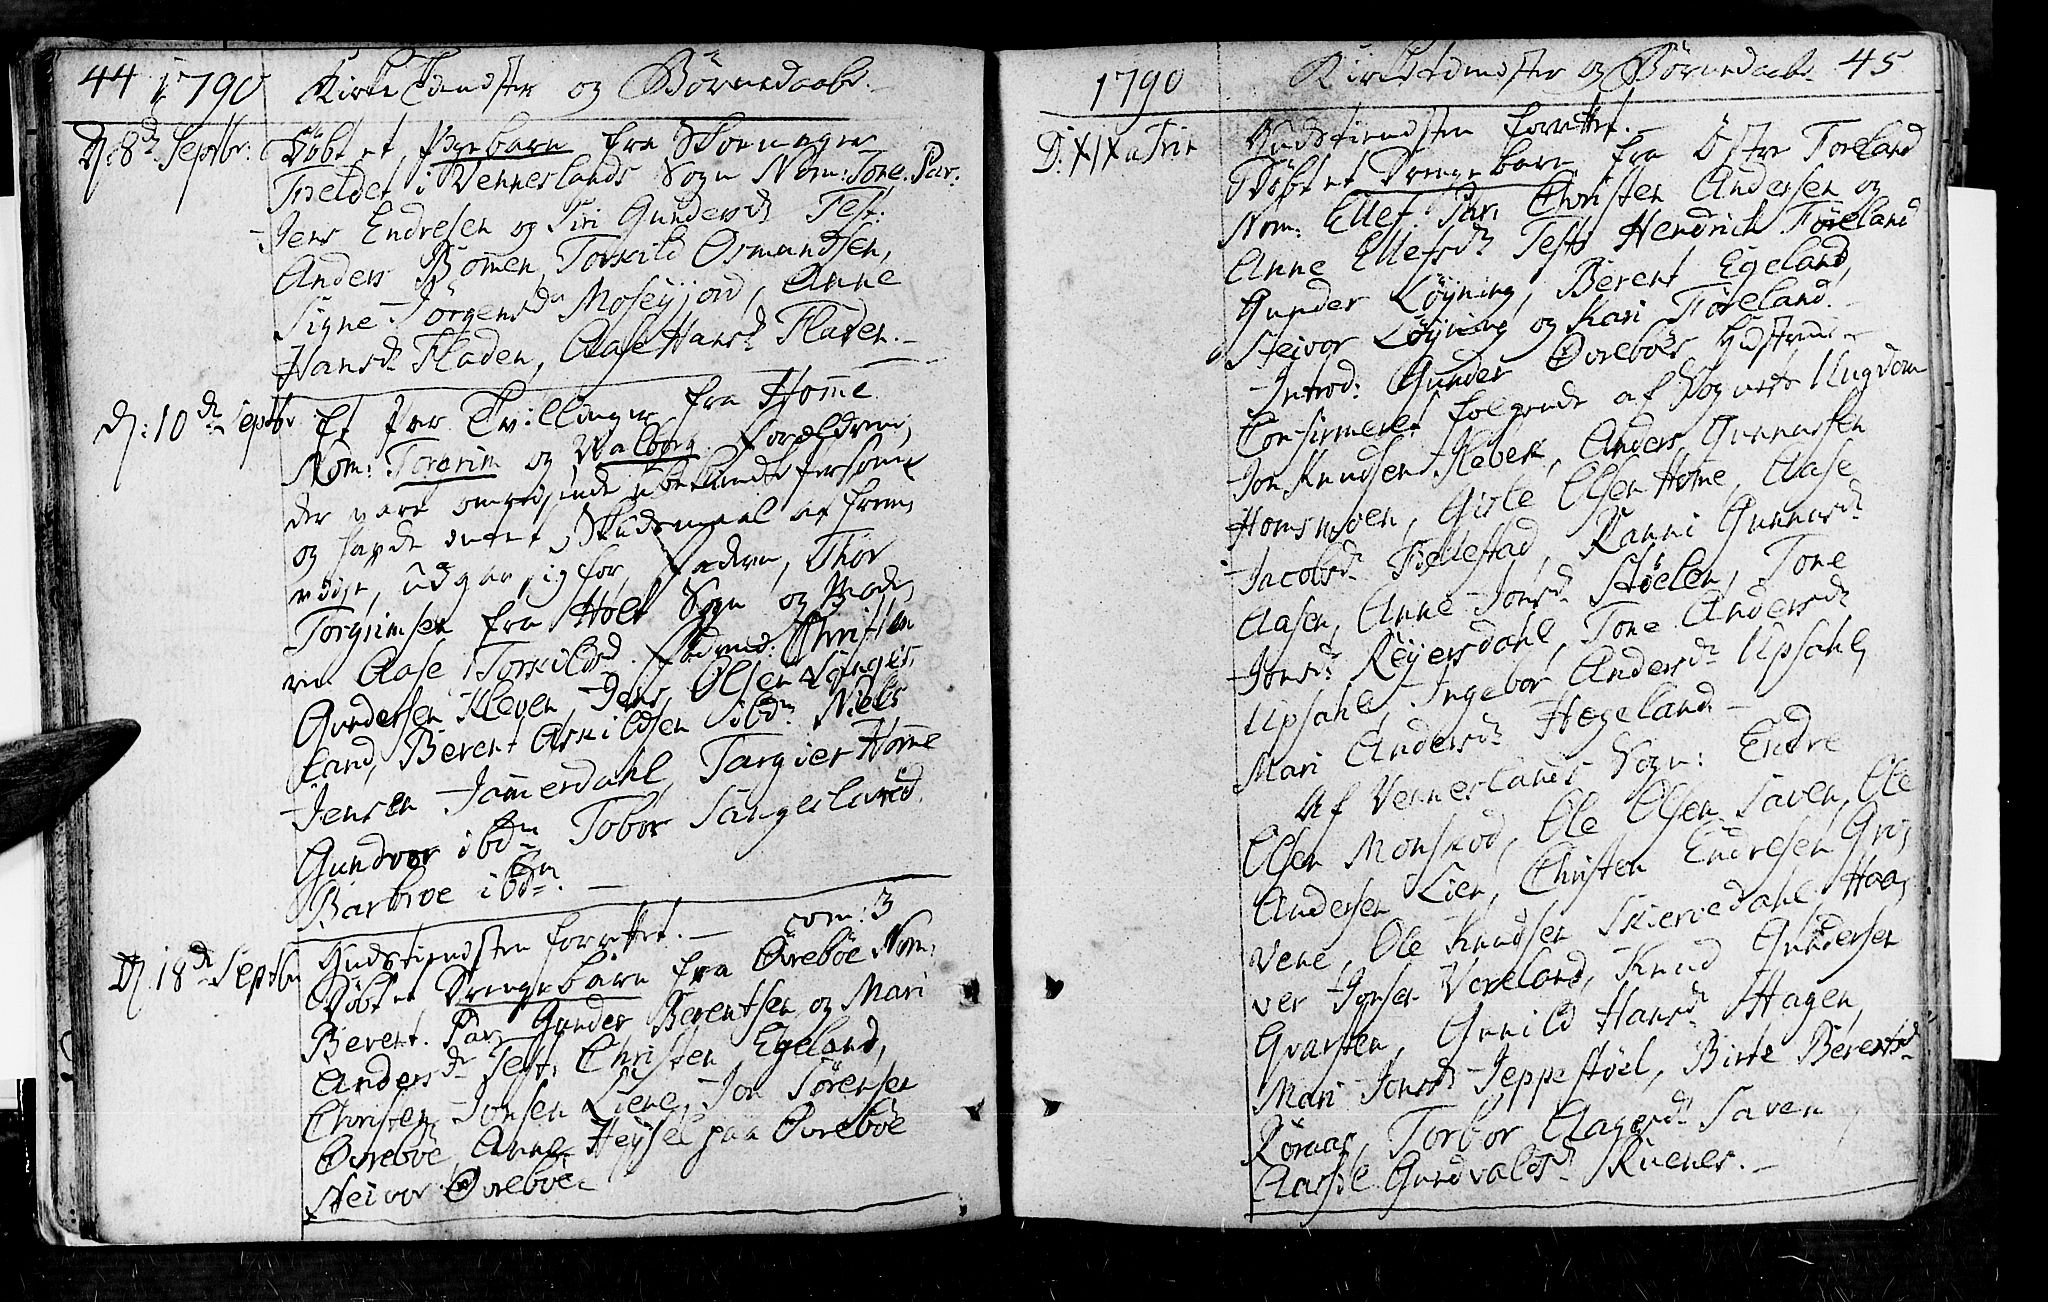 44 1790 Kirke Tienester og Børnedaabe.
D: 8de Septbr: Døbt et Pigebarn fra Skomager
Fieldet i Vennerslands Sogn Nom: Tone. Par:
Jens Endresen og Siri Gundersdr Test:
Anders Bomen, Torkild Osmundsen,
Signe Jørgensdr Moseyjord, Anne
Hansdr Fladen, Aase Hansdr Fladen.
D: 10de Septbr Et Par Tvillinger fra Home
Nom: Torgrim og Walborg. Forældrene,
der vare omreysende ubekiendte Personer
og havde intet Skudsmaal at frem
viise, udgav sig for, Faderen, Thor
Torgrimsen fra Holt Sogn og Mode
ren Aase Torkildsd. Faddere: Christen
Gundersen Kleven, Jens Olsen Sanges
land, Berent Askildsen ibdm Niels
Jensen Jammerdahl, Targier Home
Gundvor ibdm Tobor Sangesland
Barbroe ibdm.
com: 3
D: 18de Septbr Gudstienesten forrettet.
Døbt et Drengebarn fra Øvrebøe Nom:
Berent. Par: Gunder Berentsen og Mari
Andersdr Test: Christen Egeland,
Christen Jonsen Liene, Jon Sørensen
Øvrebøe, Anne Heysel paa Øvrebøe
Steivor Øvrebøe
1790 Kirketienester og Børnedaabe 45
D: XIX a Trin Gudstienesten forrettet.
Døbt et Drengebarn fra Østre Føreland
Nom: Ellef. Par: Christen Andersen og
Anne Ellefsdr Test: Hendrich Føreland
Gunder Løyning, Berent Egeland,
Steivor Løyning og Kari Føreland.
Introd: Gunder Øvrebøes Hustrue
Confirmeret følgende af Sognets Ungdom
Jon Knudsen Kleben, Anders Gunnarsen
Homsmoen, Gisle Olsen Home, Aase
Jacobsdr Fiellestad, Ranni Gunnarsdr
Aasen, Anne Jonsdr Støelen, Tone
Jonsdr Reyersdahl, Tone Andersdr
Upsahl, Ingebor Andersdr Upsahl,
Mari Andersdr Hægeland
Af Vennerslands Sogn: Endre
Olsen Monskod, Ole Olsen Saven, Ole
Andersen Lien, Christen Endresen Grø
vene, Ole Knudsen Skiervedahl, Haa
ver Jonsen Vereland, Knud Gundersen
Qvarsten, Gunild Hansdr Hagen,
Mari Jonsdr Jeppestøel, Birte Berentsdr
Røraas, Torbor Aagesdr Saven
Aasel Gundvalsdr Ruenes.